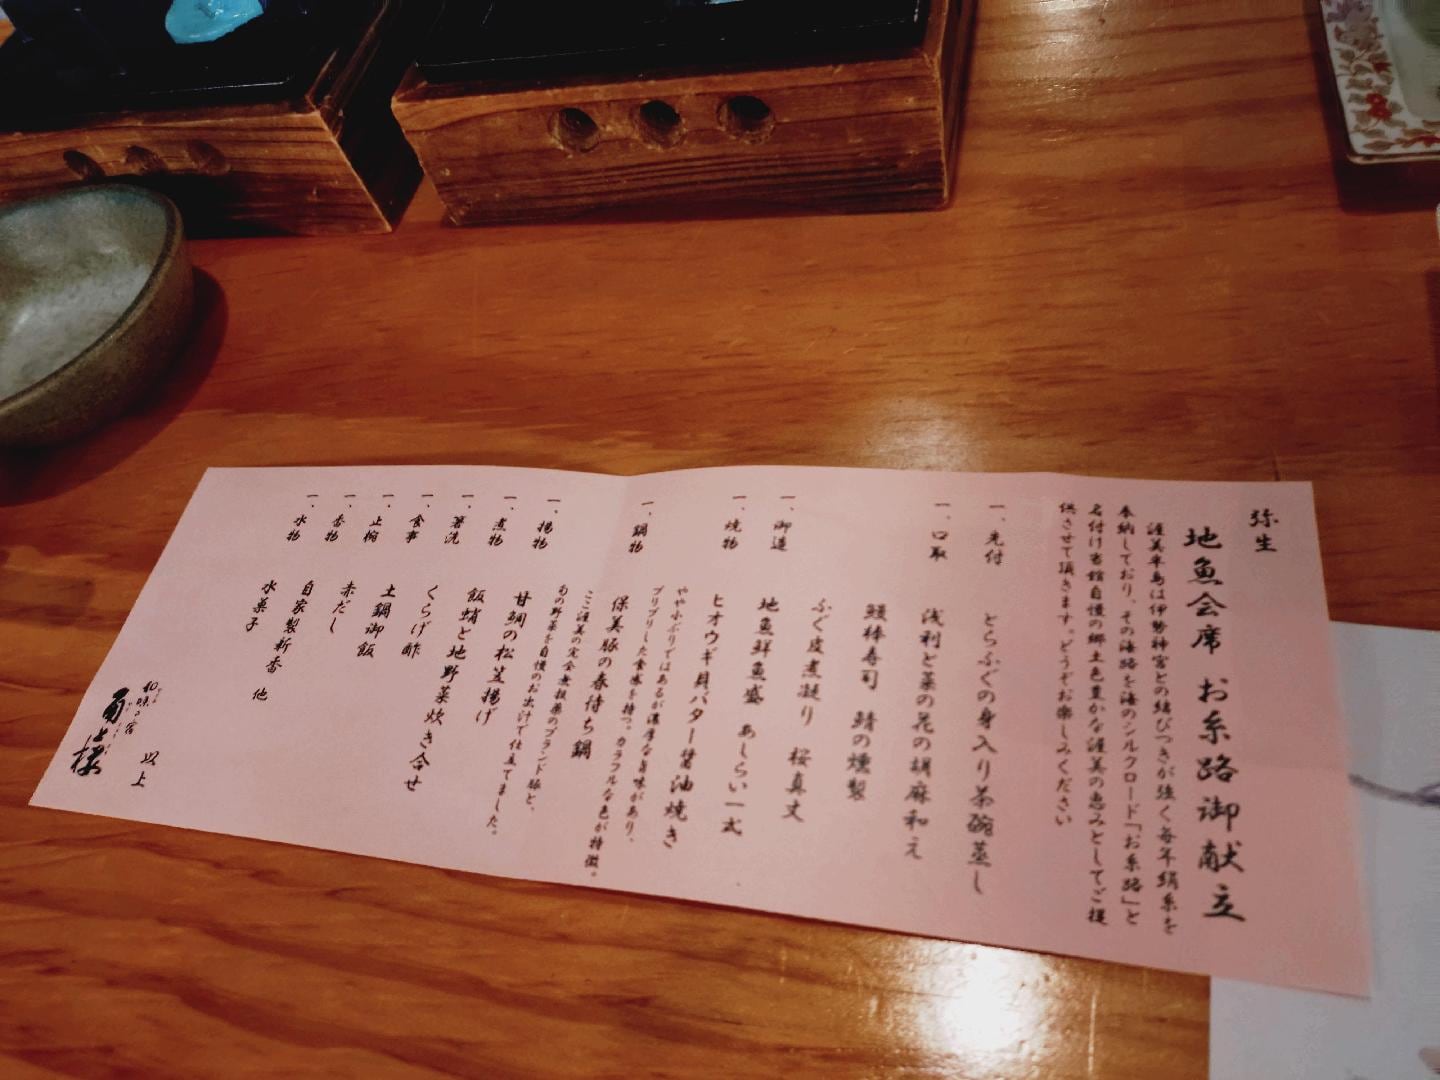 弥生
地魚会席 お糸路御献立
渥美半島は伊勢神宮との結びつきが強く毎年絹糸を
奉納しており、その海路を海のシルクロード「お糸路」と
名付け当館自慢の郷土色豊かな渥美の恵みとしてご提
供させて頂きます。どうぞお楽しみください
一、先付 とらふぐの身入り茶碗蒸し
一、口取 浅利と菜の花の胡麻和え
鰻棒寿司 鯖の燻製
ふぐ皮煮凝り 桜真丈
一、御造 地魚鮮魚盛 あしらい一式
一、焼物 ヒオウギ貝バター醤油焼き
やや小ぶりではあるが濃厚な旨味があり、
プリプリした食感を持つ。カラフルな色が特徴。
一、鍋物 保美豚の春待ち鍋
ここ渥美の完全無投薬のブランド豚と、
旬の野菜を自慢のお出汁で仕立てました。
一、揚物 甘鯛の松笠揚げ
一、煮物 飯蛸と地野菜炊き合せ
一、箸洗 くらげ酢
一、食事 土鍋御飯
一、止椀 赤だし
一、香物 自家製新香 他
一、水物 水菓子
以上
和味の宿